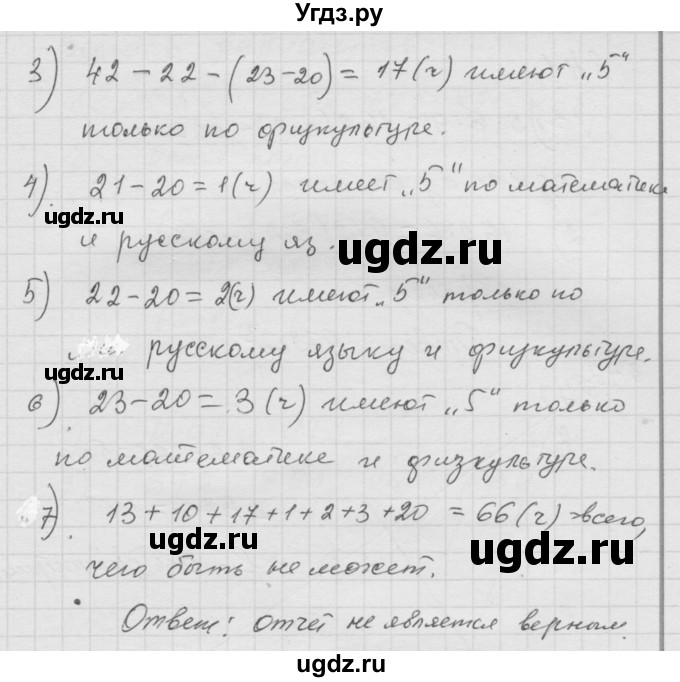 Угдз.ру
3) 42 - 22 - (23-20) = 17 (ч) имеют „5“
только по физкультуре.
4) 21 - 20 = 1 (ч) имеет „5“ по математике
и русскому яз.
ugdz.ru
ugdz.ru
5) 22 - 20 = 2(ч) имеют „5“ только по
русскому языку и физкультуре.
ugdz.ru
6) 23 - 20 = 3 (ч) имеют „5“ только
по математике и физкультуре.
7) 13 + 10 + 17 + 1 + 2 + 3 + 20 = 66 (ч) - всего,
ugdz.ru
ugdz.ru
чего быть не может.
Ответ: отчет не является верным.
ugdz.ru